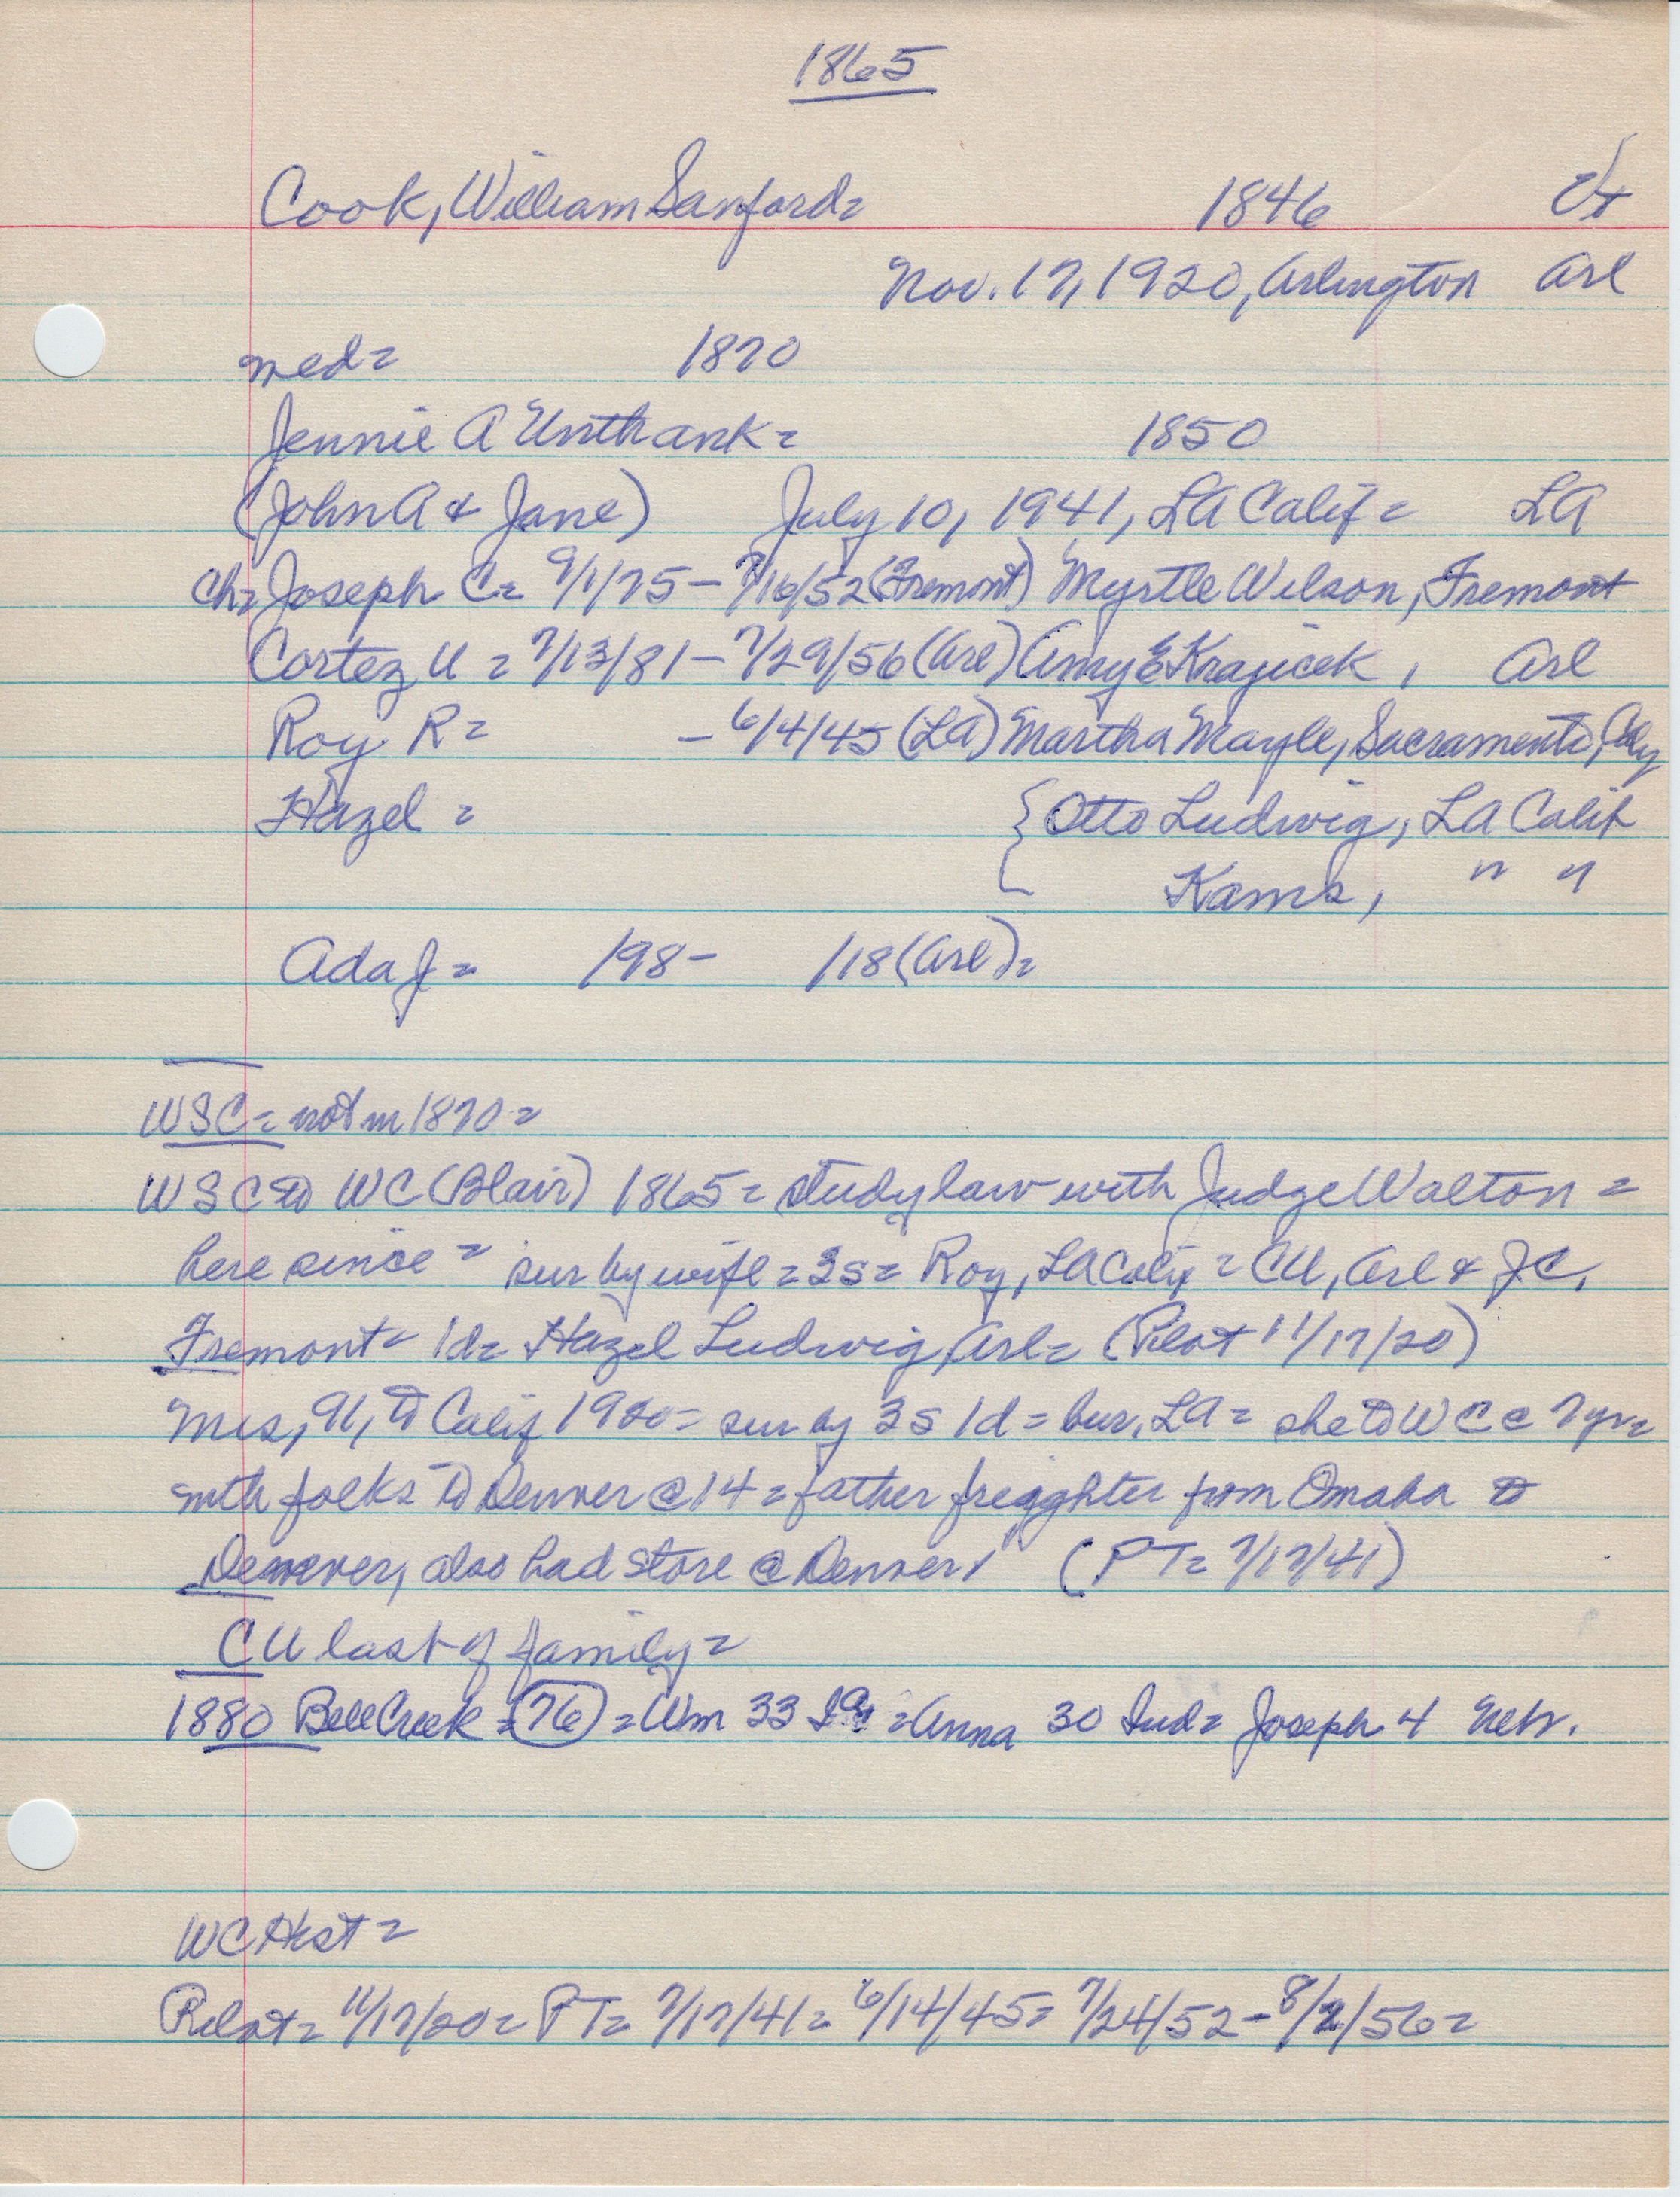 1865
Cook, William Sanford= 1846 Vt
Nov. 17, 1920, Arlington Arl
med= 1870
Jennie A Unthank= 1850
(John A & Jane) July 10, 1941, LA Calif= LA
Ch= Joseph C= 9/1/75 - 7/16/52 (Fremont) Myrtle Wilson, Fremont
Cortez U = 7/13/81 - 7/29/56 (Arl) Amy E Krajicek, Arl
Roy R= - 6/4/45 (LA) Martha Mayle, Sacramento,
Hazel = { Otto Ludwig, LA Calif
Kams, " "
Ada J= /98- /18 (Arl)=
WSC= not m 1870=
WSC to WC (Blair) 1865= study law with Judge Walton =
here since = sur by wife = 3s= Roy, LA Calif = CU, Arl & JC,
Fremont= 1d= Hazel Ludwig, Arl= (Pilot 11/17/20)
Mrs, 91, to Calif 1920= sur by 3s 1d = bur. LA= she to WC @ 7yr=
with folks to Denver @ 14 = father freigghter from Omaha to
Denver, also had store @ Denver, (PT= 7/17/41)
CU last of family=
1880 Bell Creek = 76 = Wm 33 = Anna 30 Ind= Joseph 4 Nebr.
WC Hist =
Pilot= 11/17/20= PT= 7/17/41= 6/14/45= 7/24/52 - 8/2/56=